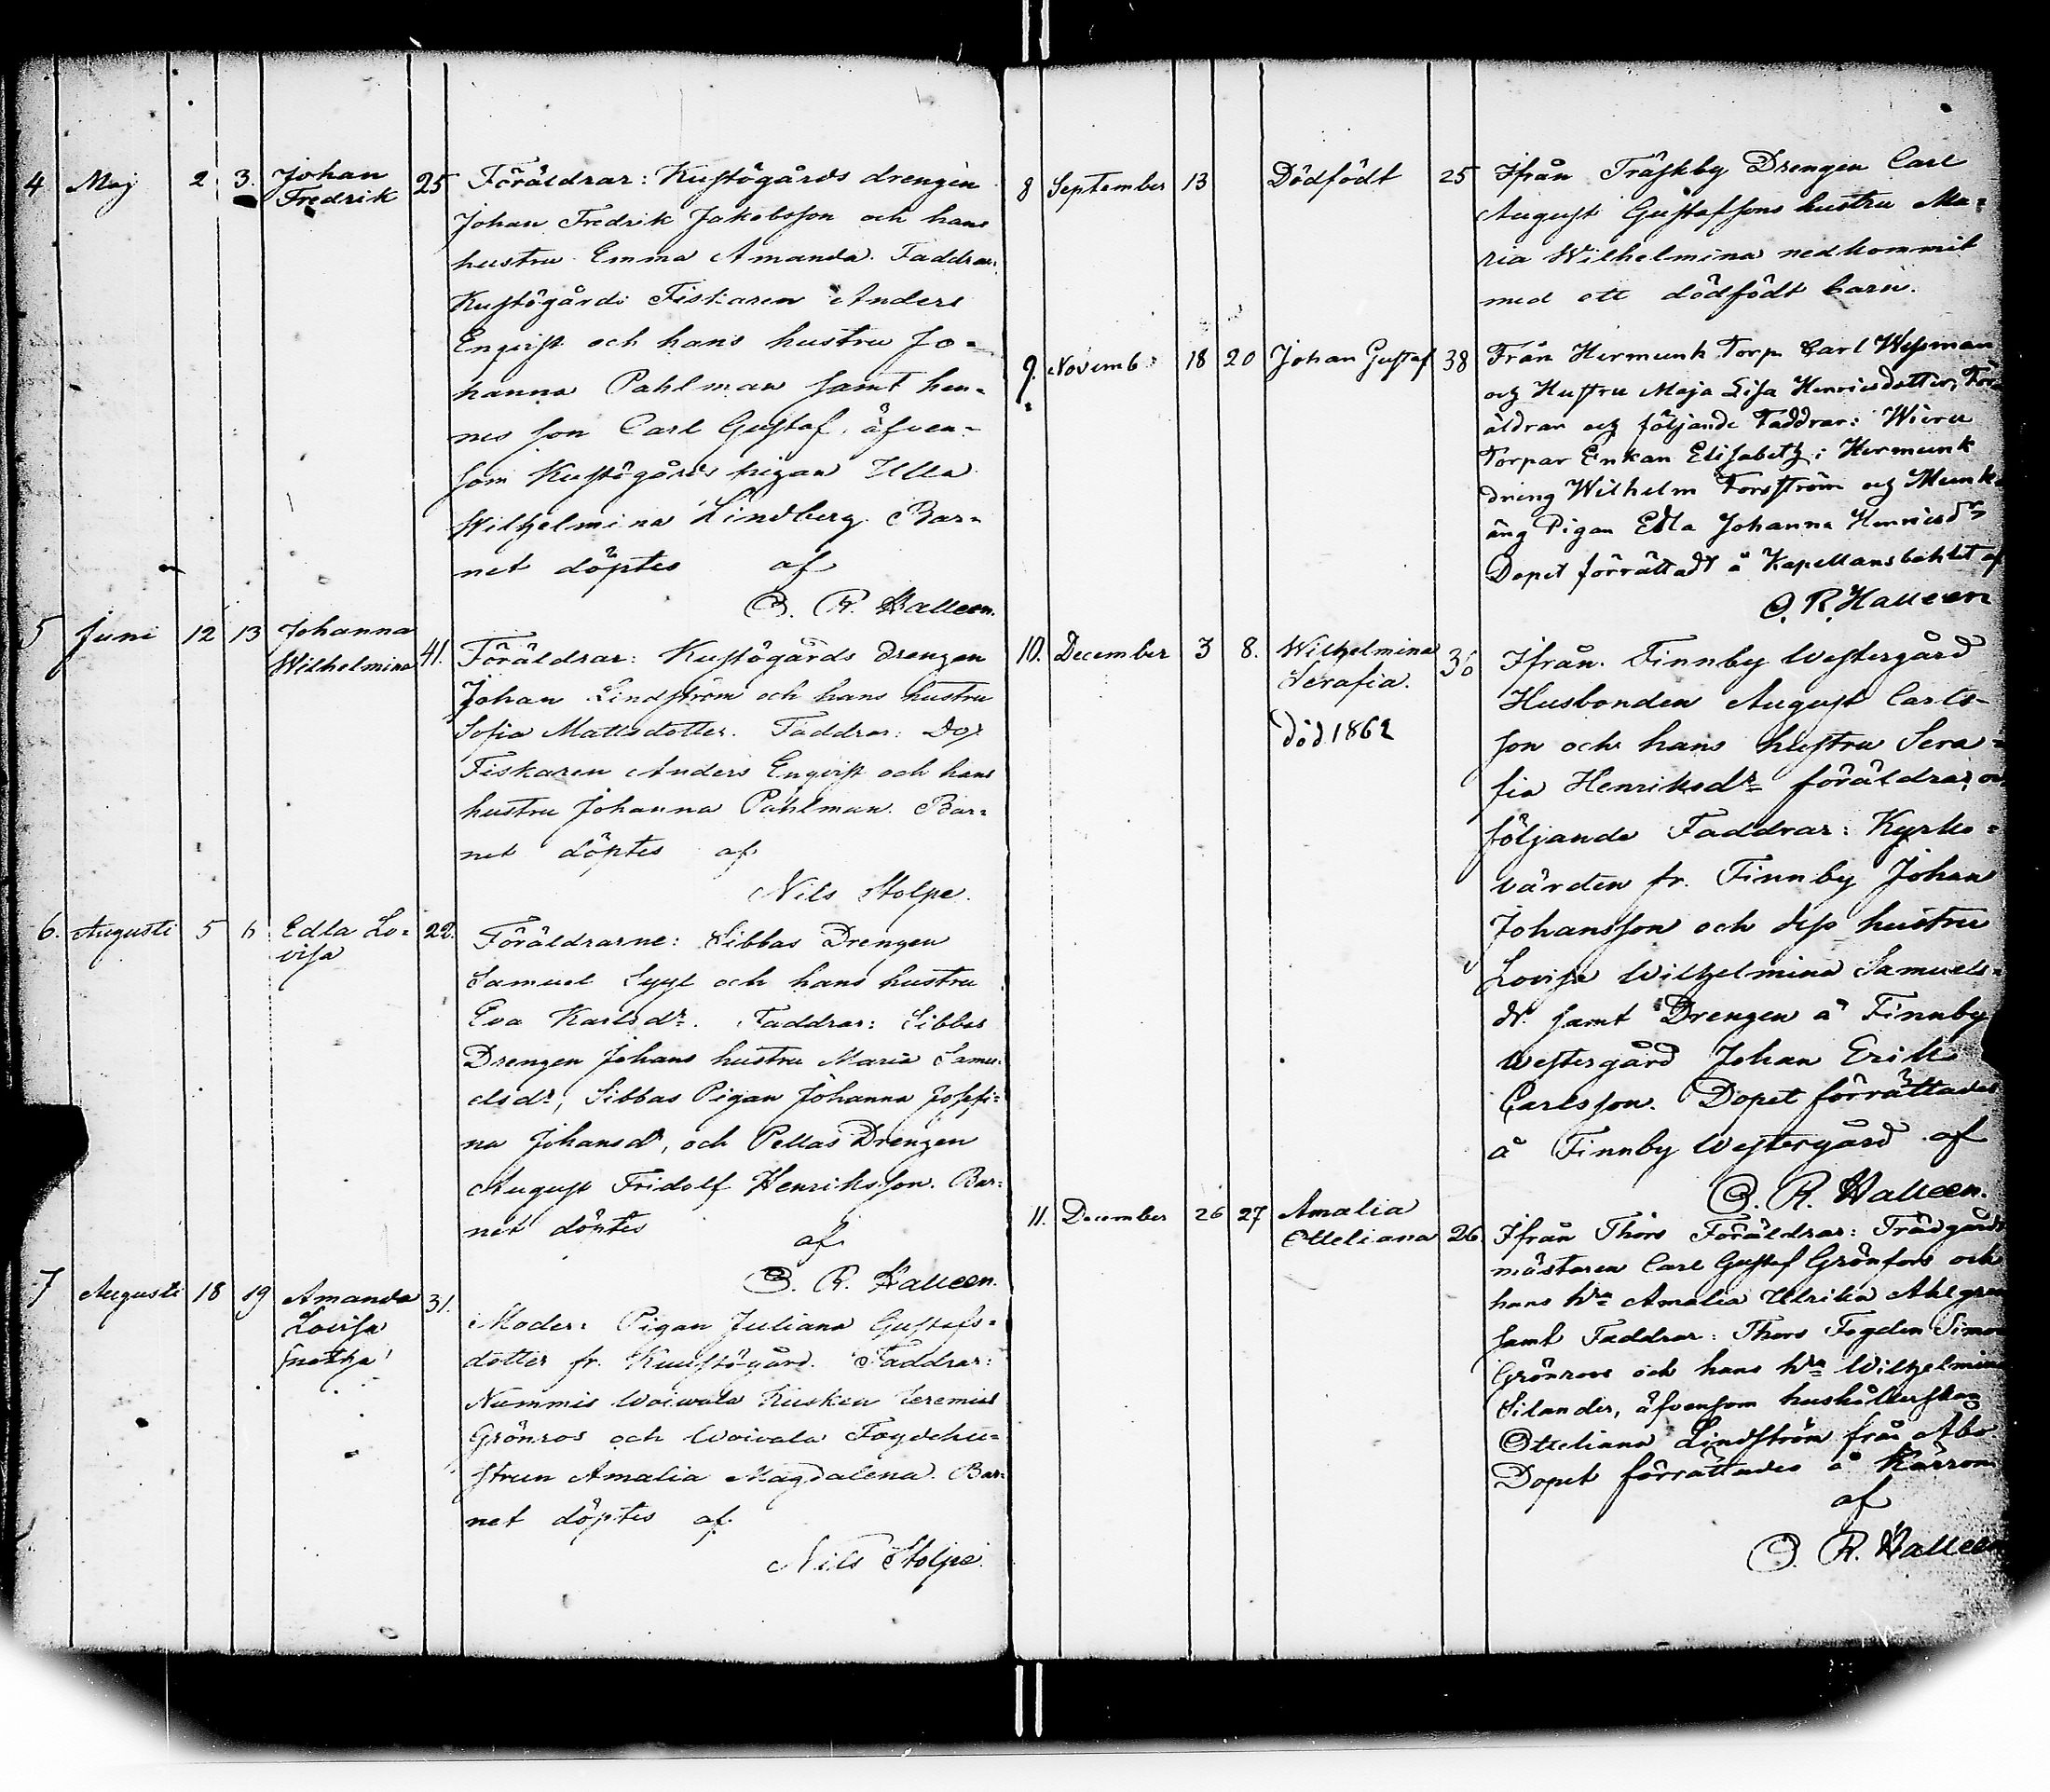 4 Maj 2 3. Johan Fredrik 25 Föräldrar: Kustögårds drengen
Johan Fredrik Jakobsson och hans
hustru Emma Amanda. Faddrar:
Kustögårds Fiskaren Anders
Enqvist och hans hustru Jo-
hanna Pahlman samt hen-
nes son Carl Gustaf, äfven-
som Kustögårds pigan Ulla
Wilhelmina Lindberg. Bar-
net döptes af
O. R. Halleen.
5 Juni 12 13 Johanna Wilhelmina 41. Föräldrar: Kustögårds drengen
Johan Lindström och hans hustru
Sofia Mattsdotter. Faddrar:
Fiskaren Anders Enqvist och hans
hustru Johanna Pahlman. Bar-
net döptes af
Nils Stolpe.
6. Augusti 5 6 Edla Lo-
visa 22. Föräldrarne: Sibbas Drengen
Samuel Sygt och hans hustru
Eva Karlsdr. Faddrar: Sibbas
Drengen Johans hustru Maria Samu-
elsdr, Sibbas Pigan Johanna Josefi-
na Johansdr, och Pellas Drengen
August Fridolf Henriksson. Bar-
net döptes
af
O. R. Halleen.
7 Augusti 18 19 Amanda Lovisa 31.
Moder: Pigan Juliana Gustafs-
dotter fr. Kuustögård. Faddrar:
Nummis Woivala Kusken Jeremias
Grönros och Woivala Fogdehu-
strun Amalia Magdalena. Bar-
net döptes af
Nils Stolpe.
8 September 13 Dödfödt 25 Ifrån Träskby Drengen Carl
August Gustafsons hustru Ma-
ria Wilhelmina nedkommit
med ett dödfödt barn.
9. Novemb: 18 20 Johan Gustaf 38 Från Hermunk Torp. Carl Wessman
och Hustru Maja Lisa Henricsdotter, För-
äldrar och följande Faddrar:
Torpar Enkan Elisabeth; Hermunk
dräng Wilhelm Forsström och Munk-
äng Pigan Edla Johanna Henricsdr
Dopet förrättadt å Kapellansbohlet af
O. R. Halleen
10. December 3 8. Wilhelmina Serafia. 36 Ifrån Finnby Westergård
död 1862
Husbonden August Carls-
son och hans hustru Sera-
fia Henriksdr föräldrar,
följande Faddrar: Kyrko-
värden fr. Finnby Johan
Johansson och dess hustru
Lovisa Wilhelmina Samuels-
dr. samt Drengen å Finnby
Westergård Johan Erik
Carlsson. Dopet förrättades
å Finnby Westergård af
O. R. Halleen.
11. December 26 27 Amalia Otteliana 26. Ifrån Thors Föräldrar: Trädgårds
mästaren Carl Gustaf Grönfors och
hans hru Amalia Ulrika Ahlgren
samt Faddrar: Thors Fogden Simon
Grönroos och hans hru Wilhelmina
Silander, äfvensom hushållerskan
Otteliana Lindström från Åbo.
Dopet förrättades å Kärrom
af
O. R. Halleen